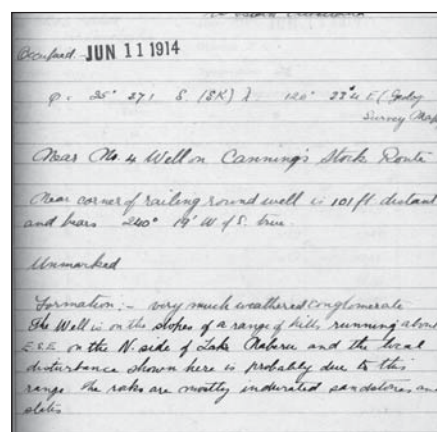 Occupied JUN 11 1914
φ = 25° 27'1 S. (SK) λ. 120° 22'4 E (Geolog
Survey Map
Near No. 4 Well on Canning's Stock Route
Near corner of railing round well is 101 ft. distant
and bears 240° 19' W of S. true.
Unmarked
Formation:- very much weathered conglomerate
The Well is on the slopes of a range of hills running about
E.S.E. on the N. side of Lake Naberu and the local
disturbance shown here is probably due to this
range The roks are mostly indurated sandstones an
slates